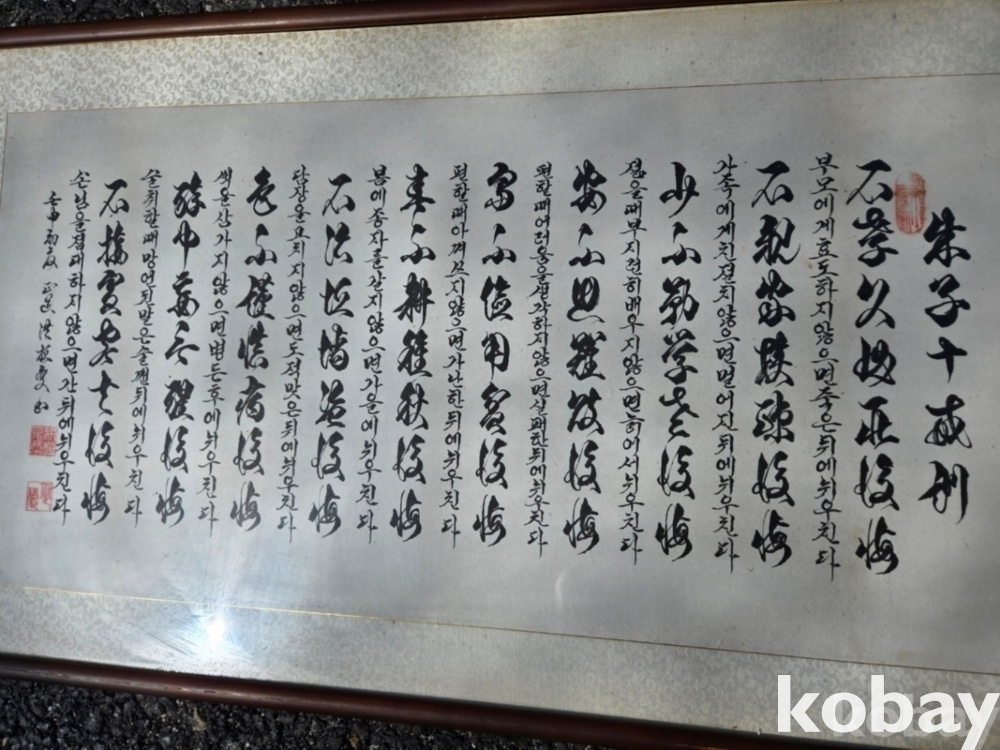 朱子十戒訓
不孝父母死後悔
부모에게효도하지않으면죽은뒤에뉘우친다
不親家族疎後悔
가족에게친절치않으면멀어진뒤에뉘우친다
少不勤學老後悔
젊을때부지런히배우지않으면늙어서뉘우친다
安不思難敗後悔
편한때어려움을생각하지않으면실패한뒤에뉘우친다
富不儉用貧後悔
편한때아껴쓰지않으면가난한뒤에뉘우친다
春不耕種秋後悔
봄에종자를갈지않으면가을에뉘우친다
不治垣墻盜後悔
담장을고치지않으면도적맞은뒤에뉘우친다
色不謹愼病後悔
색을삼가지않으면병든후에뉘우친다
醉中妄言醒後悔
술취한때망언된말은술깬뒤에뉘우친다
不接賓客去後悔
손님을접대하지않으면간뒤에뉘우친다
壬申初夏
kobay